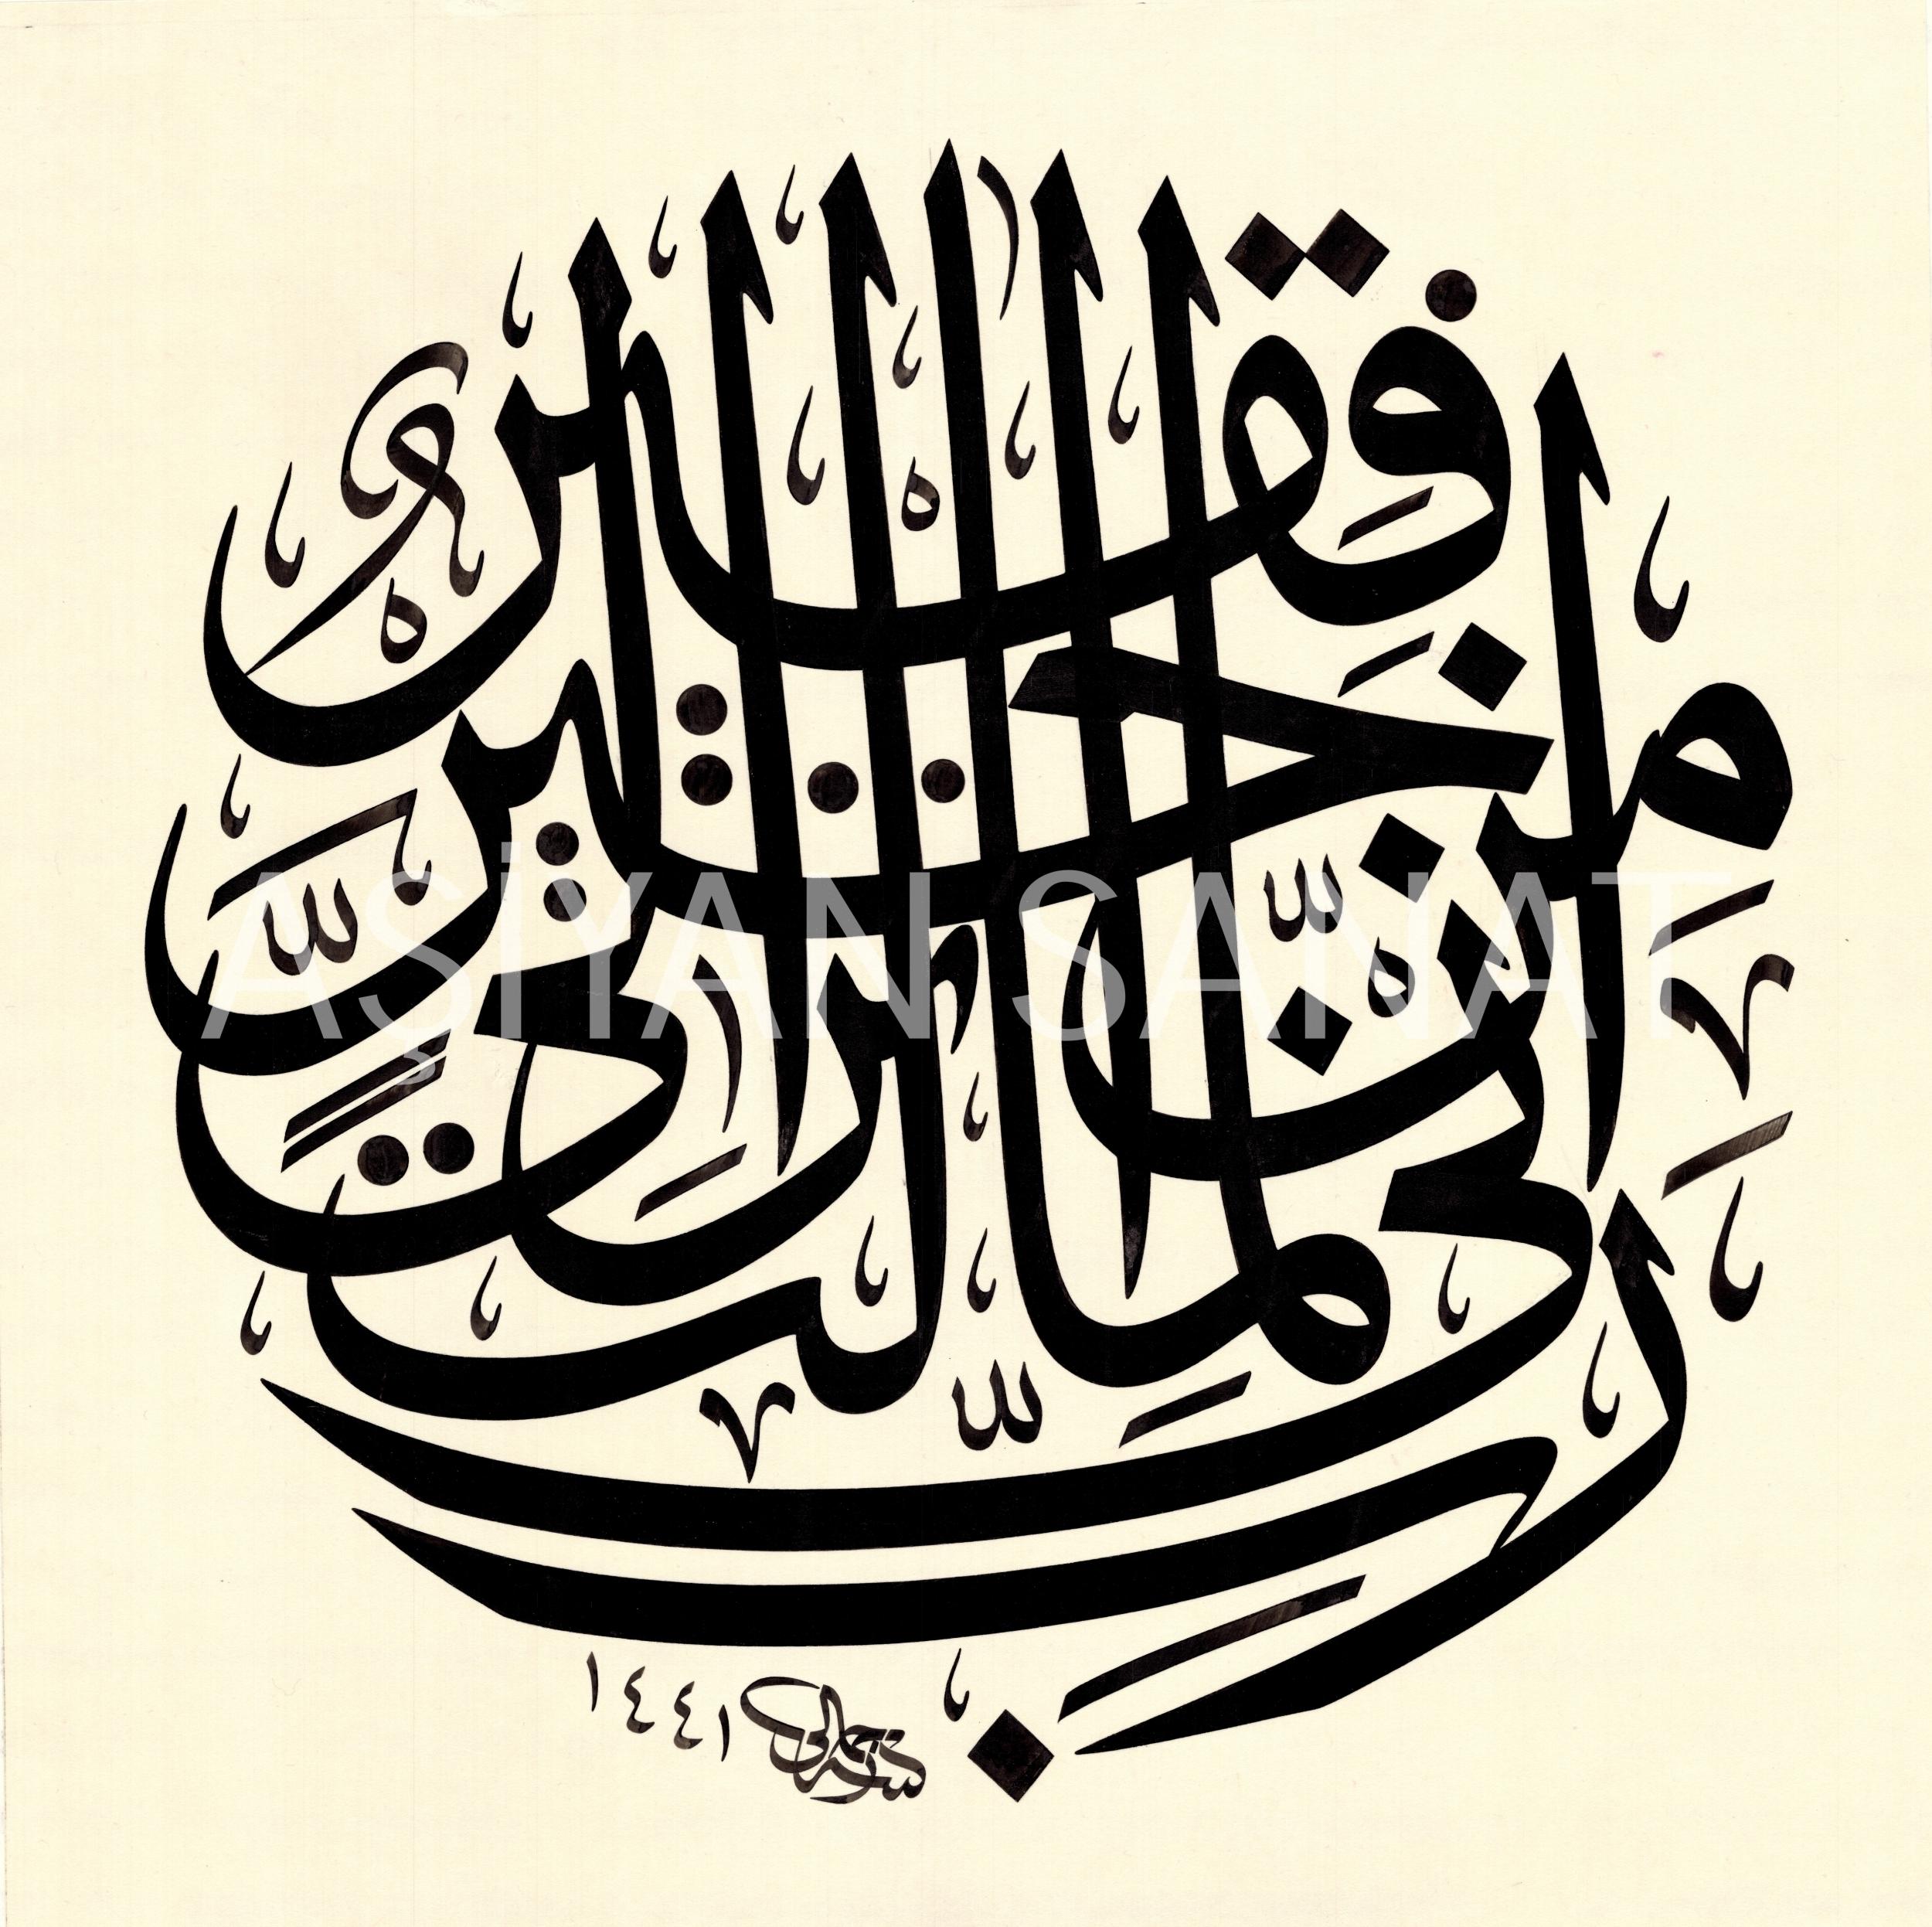 رَبِّ إِنِّي لِمَا أَنْزَلْتَ إِلَيَّ مِنْ خَيْرٍ فَقِيرٌ
AŞİYAN SANAT
١٤٤١